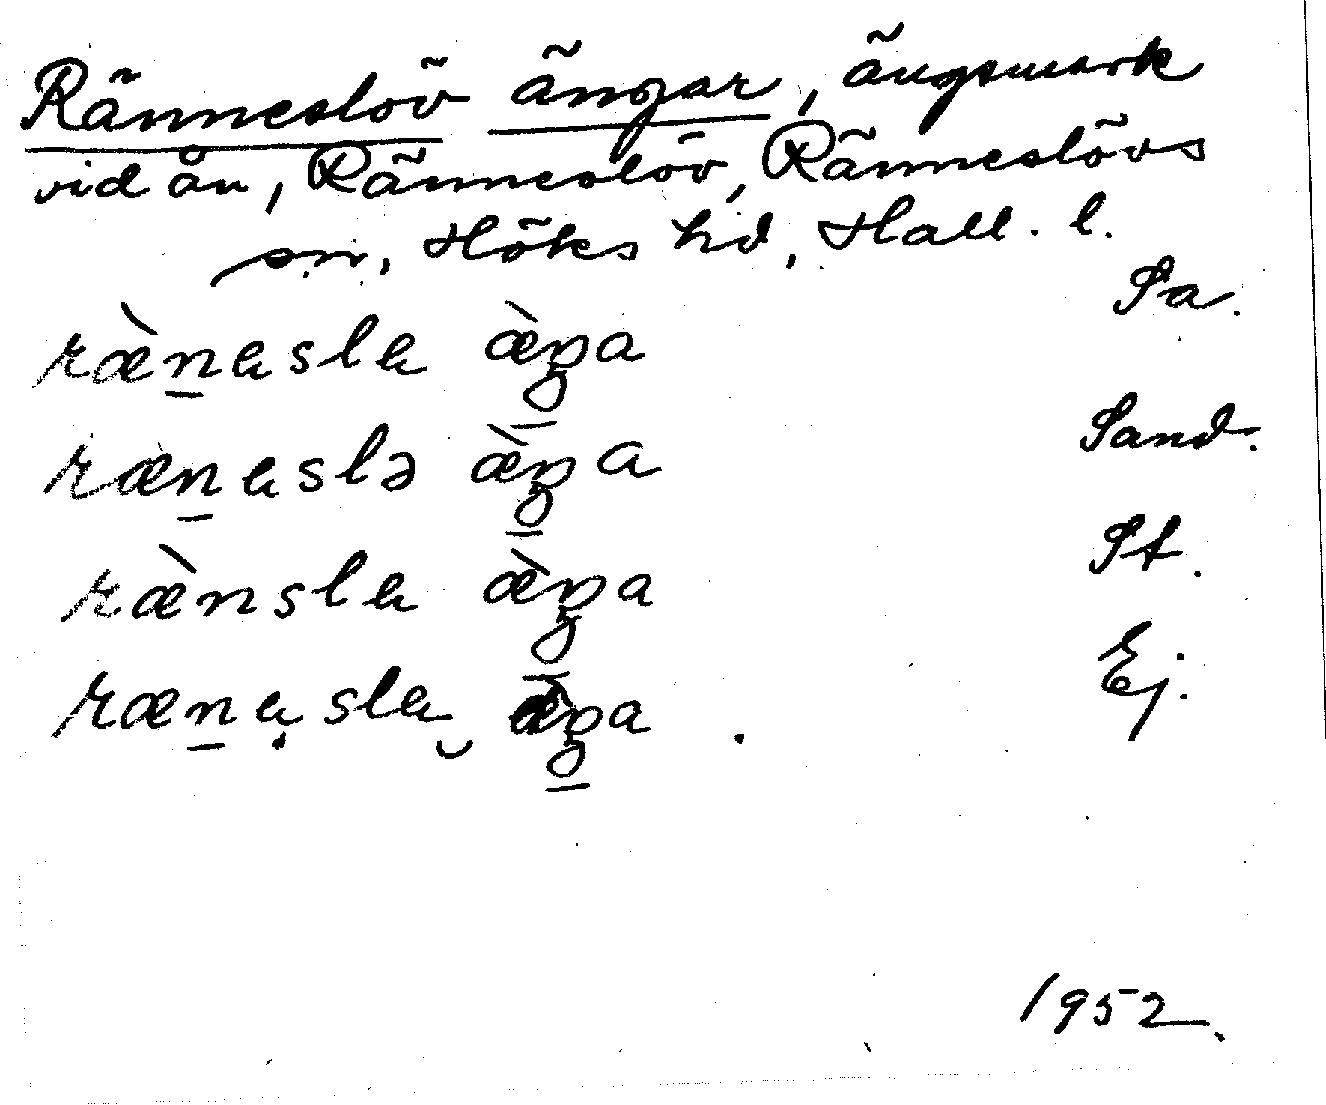 Ränneslöv ängar, ängsmark
vid ån, Ränneslöv, Ränneslövs
sn, Höks hd, Hall. l.
Sa.
ræ̀n̲asla æ̀ŋ̲a
Sand.
ræn̲aslə æ̀ŋ̲a
St.
ræ̀nsla æ̀ŋ̲a
Ej.
ræn̲ạsla ̮ æŋ̲a .
1952.